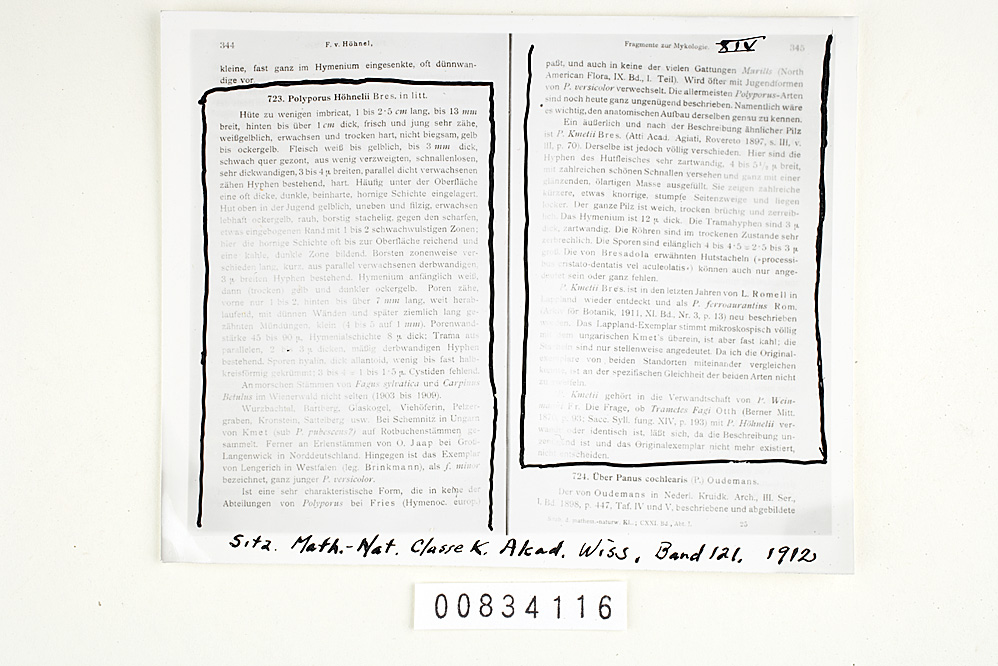 344
F. v. Höhnel,
kleine, fast ganz im Hymenium eingesenkte, oft dünnwan-
dige vor
723. Polyporus Höhnelii Bres. in litt.
Hüte zu wenigen imbricat, 1 bis 2·5 cm lang, bis 13 mm
breit, hinten bis über 1 cm dick, frisch und jung sehr zähe,
weißgelblich, erwachsen und trocken hart, nicht biegsam, gelb
bis ockergelb. Fleisch weiß bis gelblich, bis 3 mm dick,
schwach quer gezont, aus wenig verzweigten, schnallenlosen,
sehr dickwandigen, 3 bis 4 µ breiten, parallel dicht verwachsenen
zähen Hyphen bestehend, hart. Häufig unter der Oberfläche
eine oft dicke, dunkle, beinharte, hornige Schichte eingelagert.
Hut oben in der Jugend gelblich, uneben und filzig, erwachsen
lebhaft ockergelb, rauh, borstig stachelig, gegen den scharfen,
etwas eingebogenen Rand mit 1 bis 2 schwachwulstigen Zonen;
hier die hornige Schichte oft bis zur Oberfläche reichend und
eine kahle, dunkle Zone bildend. Borsten zonenweise ver-
schieden lang, kurz, aus parallel verwachsenen derbwandigen,
3 µ breiten Hyphen bestehend. Hymenium anfänglich weiß,
dann (trocken) gelb und dunkler ockergelb. Poren zähe,
vorne nur 1 bis 2, hinten bis über 7 mm lang, weit herab-
laufend, mit dünnen Wänden und später ziemlich lang ge-
zähnten Mündungen, klein (4 bis 5 auf 1 mm). Porenwand-
stärke 45 bis 90 µ, Hymenialschichte 8 µ dick; Trama aus
parallelen, 2 - 3 µ dicken, mäßig derbwandigen Hyphen
bestehend. Sporen hyalin, dick allantoid, wenig bis fast halb-
kreisförmig gekrümmt; 3 bis 4 × 1 bis 1·5 µ. Cystiden fehlend.
An morschen Stämmen von Fagus sylvatica und Carpinus
Betulus im Wienerwald nicht selten (1903 bis 1909).
Wurzbachtal, Bartberg, Glaskogel, Viehöferin, Pelzer-
graben, Kronstein, Sattelberg usw. Bei Schemnitz in Ungarn
von Kmet (sub P. pubescens?) auf Rotbuchenstämmen ge-
sammelt. Ferner an Erlenstämmen von O. Jaap bei Groß-
Langenwick in Norddeutschland. Hingegen ist das Exemplar
von Lengerich in Westfalen (leg. Brinkmann), als f. minor
bezeichnet, ganz junger P. versicolor.
Ist eine sehr charakteristische Form, die in keine der
Abteilungen von Polyporus bei Fries (Hymenoc. europ.)
Fragmente zur Mykologie. XIV
345
paßt, und auch in keine der vielen Gattungen Murills (North
American Flora, IX. Bd., I. Teil). Wird öfter mit Jugendformen
von P. versicolor verwechselt. Die allermeisten Polyporus-Arten
sind noch heute ganz ungenügend beschrieben. Namentlich wäre
es wichtig, den anatomischen Aufbau derselben genau zu kennen.
Ein äußerlich und nach der Beschreibung ähnlicher Pilz
ist P. Kmetii Bres. (Atti Acad. Agiati, Rovereto 1897, s. III, v.
III, p. 70). Derselbe ist jedoch völlig verschieden. Hier sind die
Hyphen des Hutfleisches sehr zartwandig, 4 bis 5½ µ breit,
mit zahlreichen schönen Schnallen versehen und ganz mit einer
glänzenden, ölartigen Masse ausgefüllt. Sie zeigen zahlreiche
kürzere, etwas knorrige, stumpfe Seitenzweige und liegen
locker. Der ganze Pilz ist weich, trocken brüchig und zerreib-
lich. Das Hymenium ist 12 µ dick. Die Tramahyphen sind 3 µ
dick, zartwandig. Die Röhren sind im trockenen Zustande sehr
zerbrechlich. Die Sporen sind eilänglich 4 bis 4·5 × 2·5 bis 3 µ
groß. Die von Bresadola erwähnten Hutstacheln (»processi-
bus cristato-dentatis vel aculeolatis«) können auch nur ange-
deutet sein oder ganz fehlen.
P. Kmetii Bres. ist in den letzten Jahren von L. Romell in
Lappland wieder entdeckt und als P. ferroaurantius Rom.
(Arkiv für Botanik, 1911, XI. Bd., Nr. 3, p. 13) neu beschrieben
worden. Das Lappland-Exemplar stimmt mikroskopisch völlig
mit dem ungarischen Kmet's überein, ist aber fast kahl; die
Stacheln sind nur stellenweise angedeutet. Da ich die Original-
exemplare von beiden Standorten miteinander vergleichen
konnte, ist an der spezifischen Gleichheit der beiden Arten nicht
zu zweifeln.
P. Kmetii gehört in die Verwandtschaft von P. Wein-
manni Fr. Die Frage, ob Trametes Fagi Otth (Berner Mitt.
p. 93; Sacc. Syll. fung. XIV, p. 193) mit P. Höhnelii ver-
wandt oder identisch ist, läßt sich, da die Beschreibung un-
genügend ist und das Originalexemplar nicht mehr existiert,
nicht entscheiden.
724. Über Panus cochlearis (P.) Oudemans.
Der von Oudemans in Nederl. Kruidk. Arch., III. Ser.,
I. Bd. 1898, p. 447, Taf. IV und V, beschriebene und abgebildete
Sitzb. d. mathem.-naturw. Kl.; CXXI. Bd., Abt. I.
25
Sitz. Math.-Nat. Classe K. Akad. Wiss, Band 121. 1912
00834116